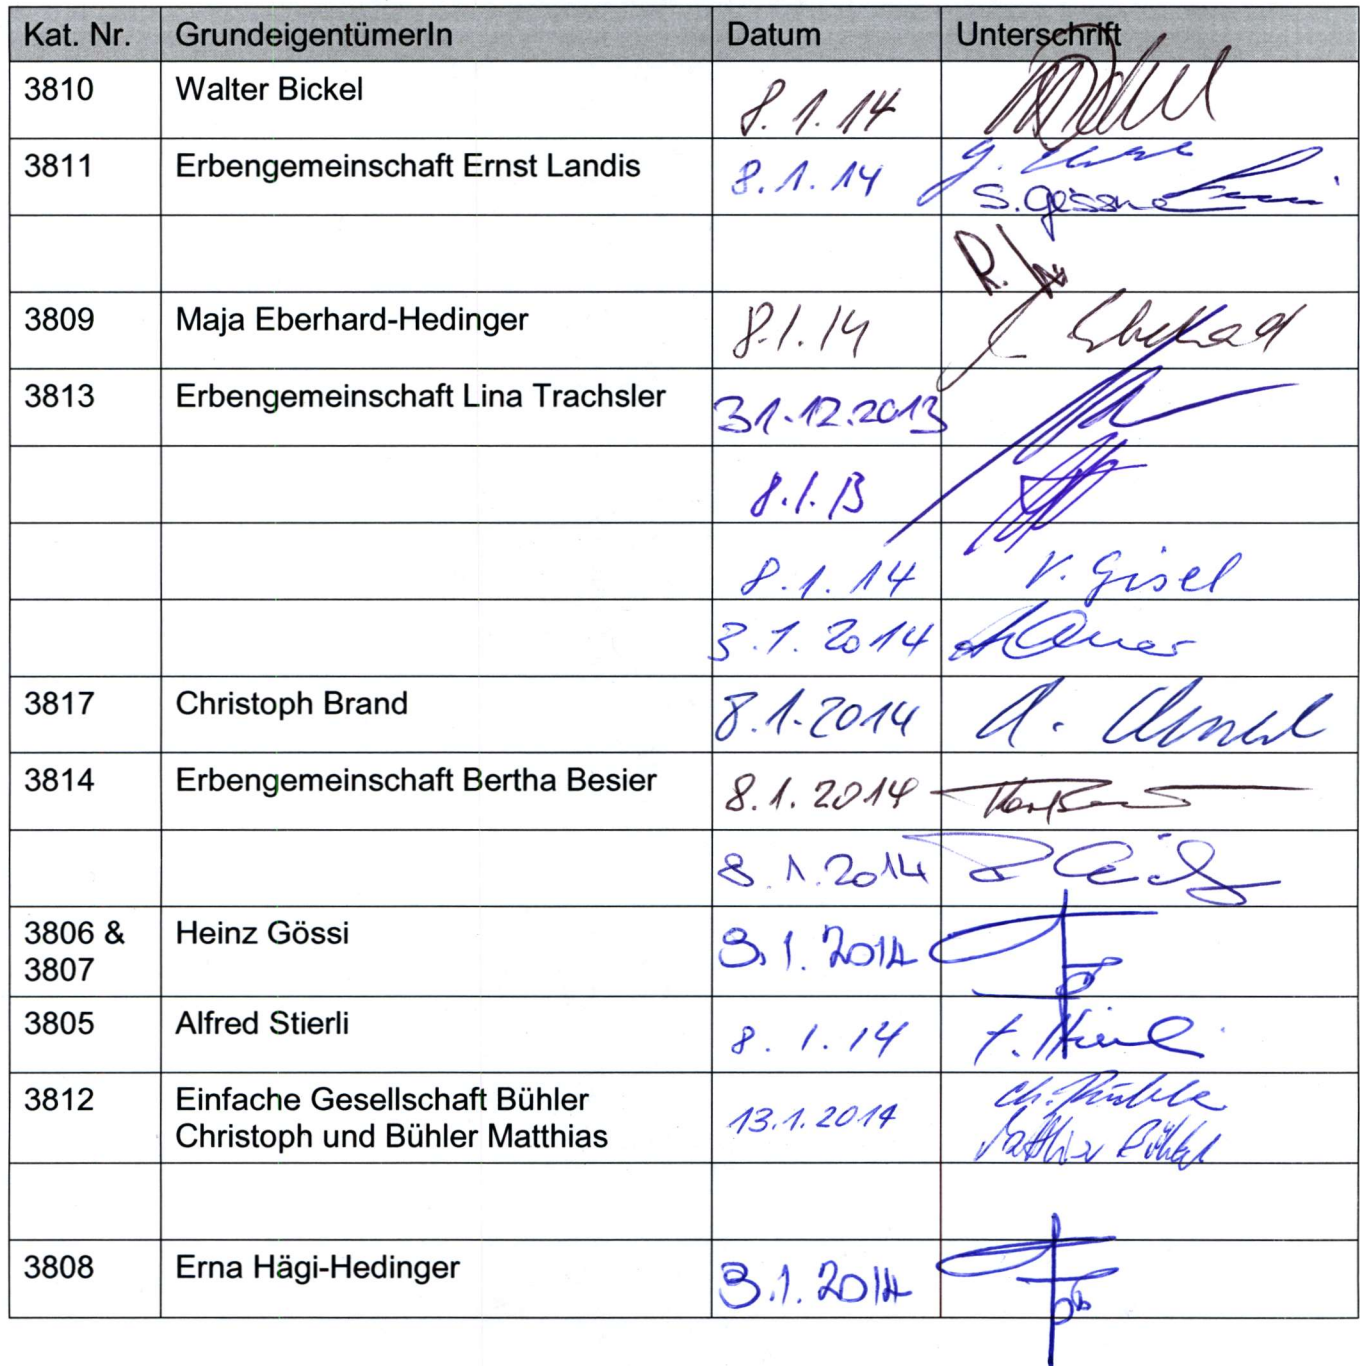 Kat. Nr. GrundeigentümerIn Datum Unterschrift
3810 Walter Bickel 8.1.14
3811 Erbengemeinschaft Ernst Landis 8.1.14
S. Gessner
R.
3809 Maja Eberhard-Hedinger 8.1.14 Eberhard
3813 Erbengemeinschaft Lina Trachsler 31.12.2013
8.1.13
8.1.14 V. Gisel
3.1.2014
3817 Christoph Brand 8.1.2014
3814 Erbengemeinschaft Bertha Besier 8.1.2014
8.1.2014
3806 & Heinz Gössi 8.1.2014
3807
3805 Alfred Stierli 8.1.14 A. Stierli
3812 Einfache Gesellschaft Bühler 13.1.2014 Ch. Bühler
Christoph und Bühler Matthias Matthias Bühler
3808 Erna Hägi-Hedinger 3.1.2014